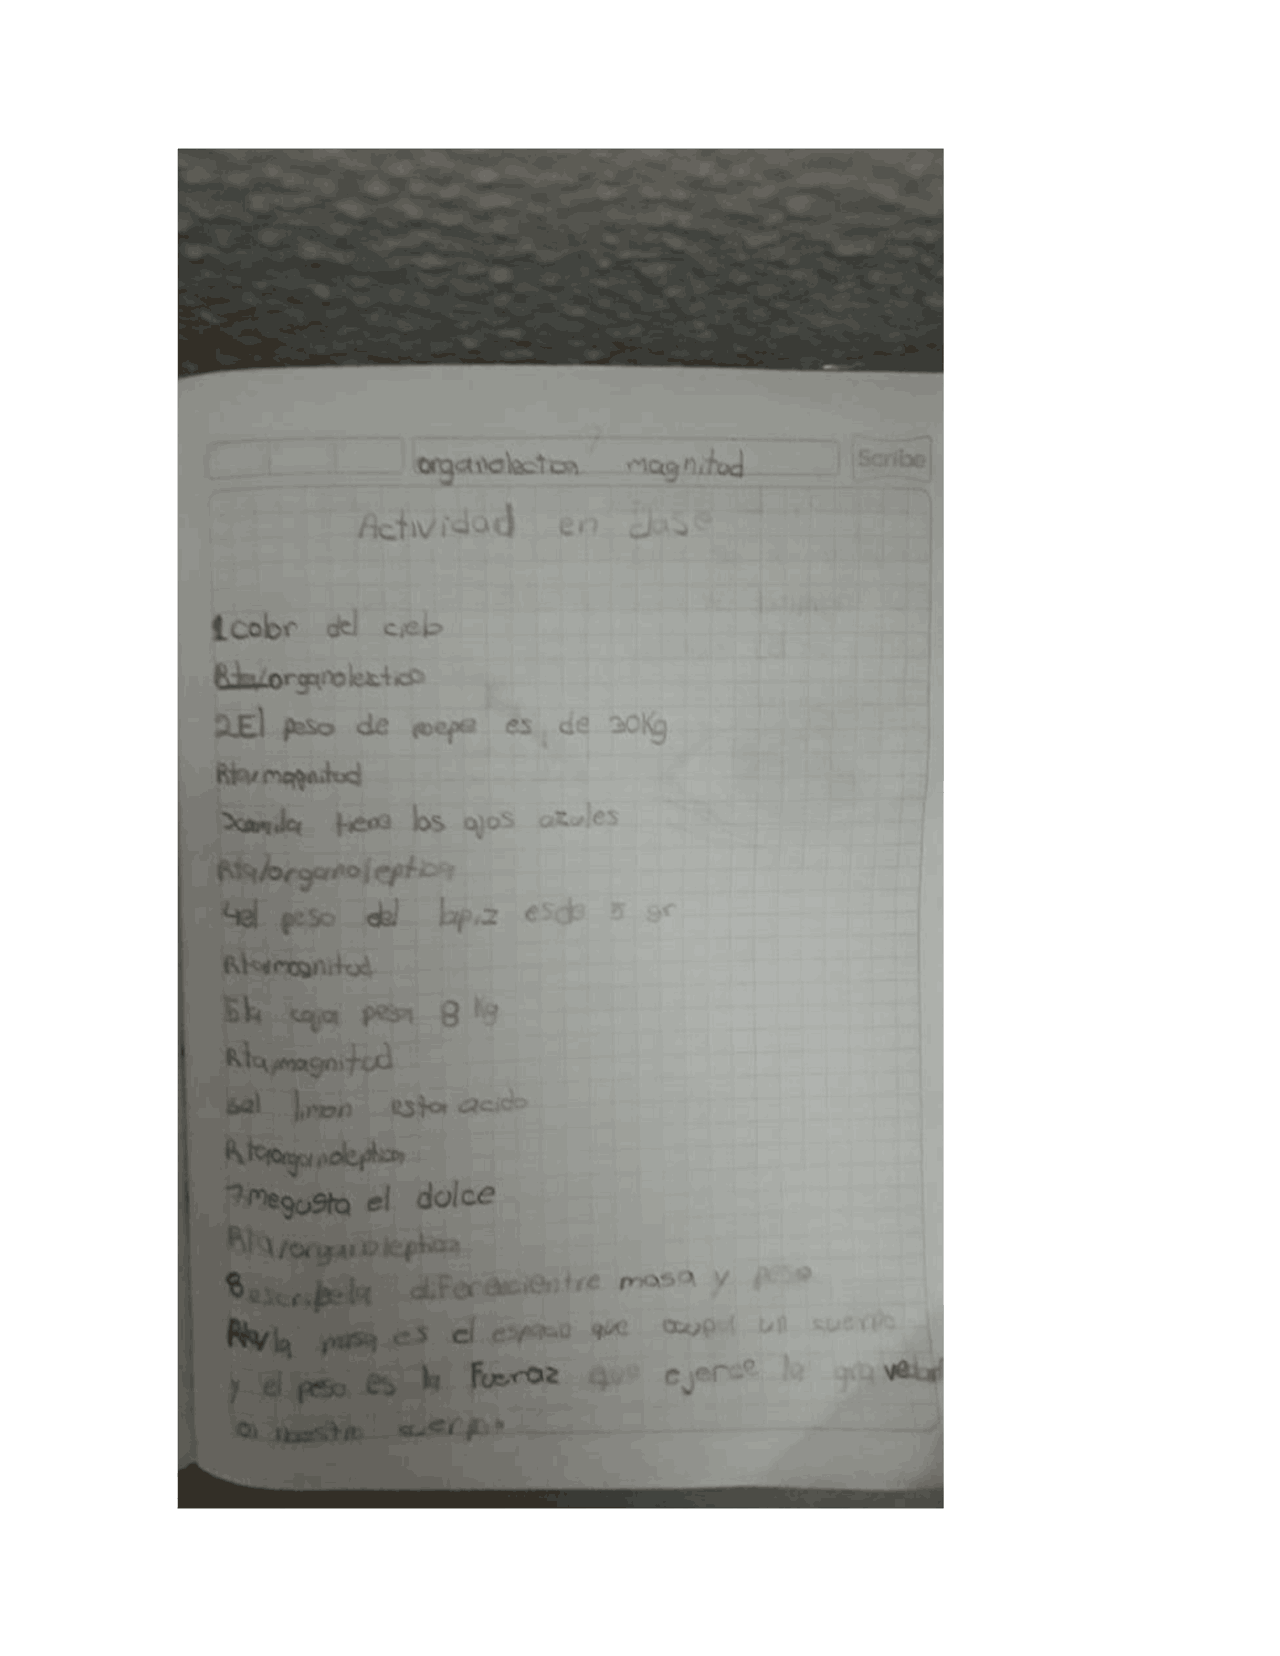 organolectica magnitud
Scribe
Actividad en clase
1 color del cielo
Rta/organolectico
2 El peso de pepe es de 30Kg
Rta/magnitud
3 camila tiene los ojos azules
Rta/organoleptica
4 el peso del lapiz es de 5 gr
Rta/magnitud
5 la caja pesa 8 kg
Rta/magnitud
6 el limon esta acido
Rta/organoleptica
7 me gusta el dolce
Rta/organoleptica
8 escribe la entre masa y peso
Rta/la masa es el espacio que ocupa un cuerpo
y el peso es la Fueraz que ejerce la gravedad
a nuestro cuerpo